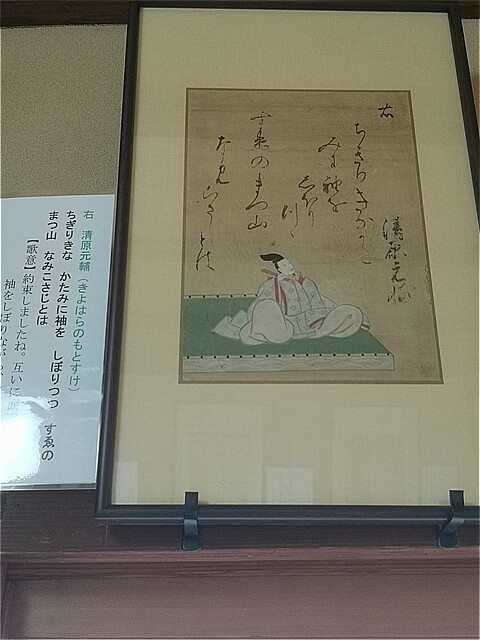 右
清原元輔
ちきりきなかた
みに袖を
しほり
つゝ
すゑのまつ山
なみこさし
とは
右　清原元輔（きよはらのもとすけ）
ちぎりきな　かたみに袖を　しぼりつつ　すゑの
まつ山　なみこさじとは
【歌意】約束しましたね。互いに涙
袖をしぼりなが